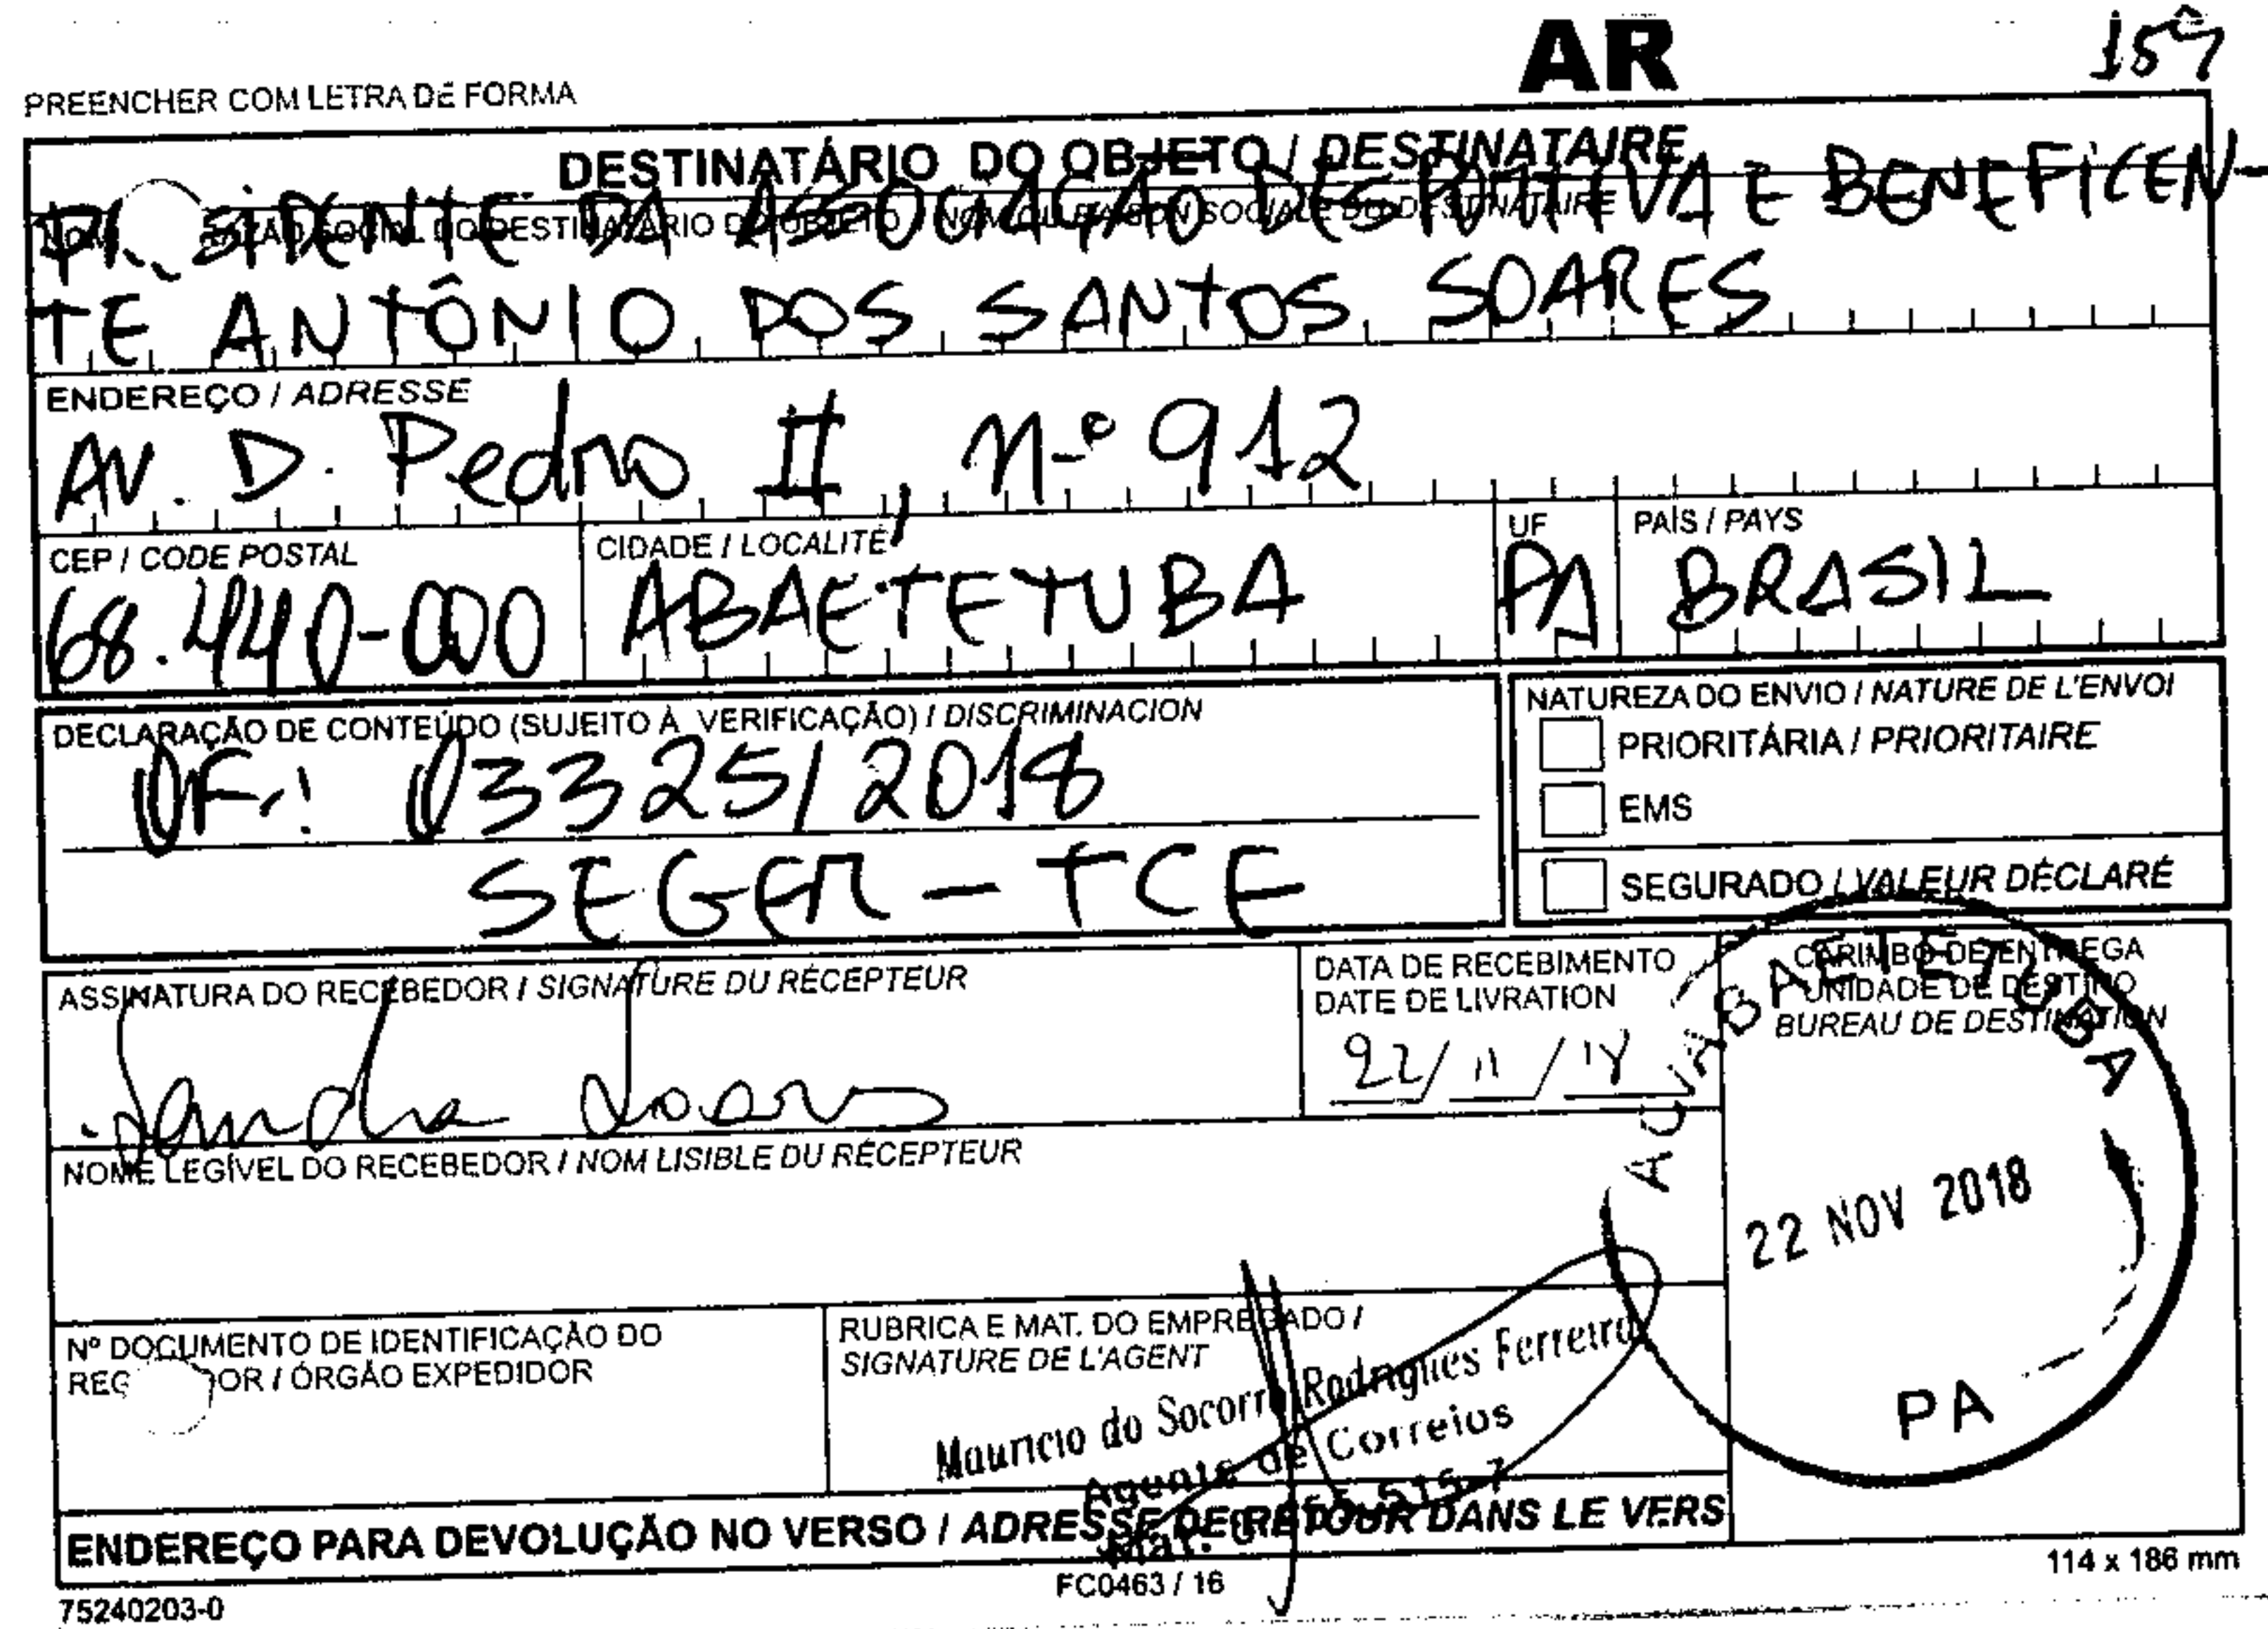 AR
159
PREENCHER COM LETRA DE FORMA
DESTINATÁRIO DO OBJETO / DESTINATAIRE
RAZÃO SOCIAL DO DESTINATÁRIO DO OBJETO / NOM OU RAISON SOCIALE DU DESTINATAIRE
PRESIDENTE DA ASSOCIAÇÃO DESPORTIVA E BENEFICEN-
TE ANTÔNIO DOS SANTOS SOARES
ENDEREÇO / ADRESSE
AV. D. Pedro II, nº 912
CEP / CODE POSTAL CIDADE / LOCALITÉ UF PAÍS / PAYS
68.440-000 ABAETETUBA PA BRASIL
DECLARAÇÃO DE CONTEÚDO (SUJEITO À VERIFICAÇÃO) / DISCRIMINACION
OF.: 03325/2018
SEGER - TCE
NATUREZA DO ENVIO / NATURE DE L'ENVOI
PRIORITÁRIA / PRIORITAIRE
EMS
SEGURADO / VALEUR DÉCLARÉ
ASSINATURA DO RECEBEDOR / SIGNATURE DU RÉCEPTEUR
Sandra Soares
DATA DE RECEBIMENTO
DATE DE LIVRATION
22/11/18
CARIMBO DE ENTREGA
UNIDADE DE DESTINO
BUREAU DE DESTINATION
ABAETETUBA
22 NOV 2018
PA
NOME LEGÍVEL DO RECEBEDOR / NOM LISIBLE DU RÉCEPTEUR
Nº DOCUMENTO DE IDENTIFICAÇÃO DO
REC OR / ÓRGÃO EXPEDIDOR
RUBRICA E MAT. DO EMPREGADO /
SIGNATURE DE L'AGENT
Mauricio do Socorro Rodrigues Ferreira
Agente de Correios
Mat.
ENDEREÇO PARA DEVOLUÇÃO NO VERSO / ADRESSE DE RETOUR DANS LE VERS
75240203-0
FC0463 / 16
114 x 186 mm